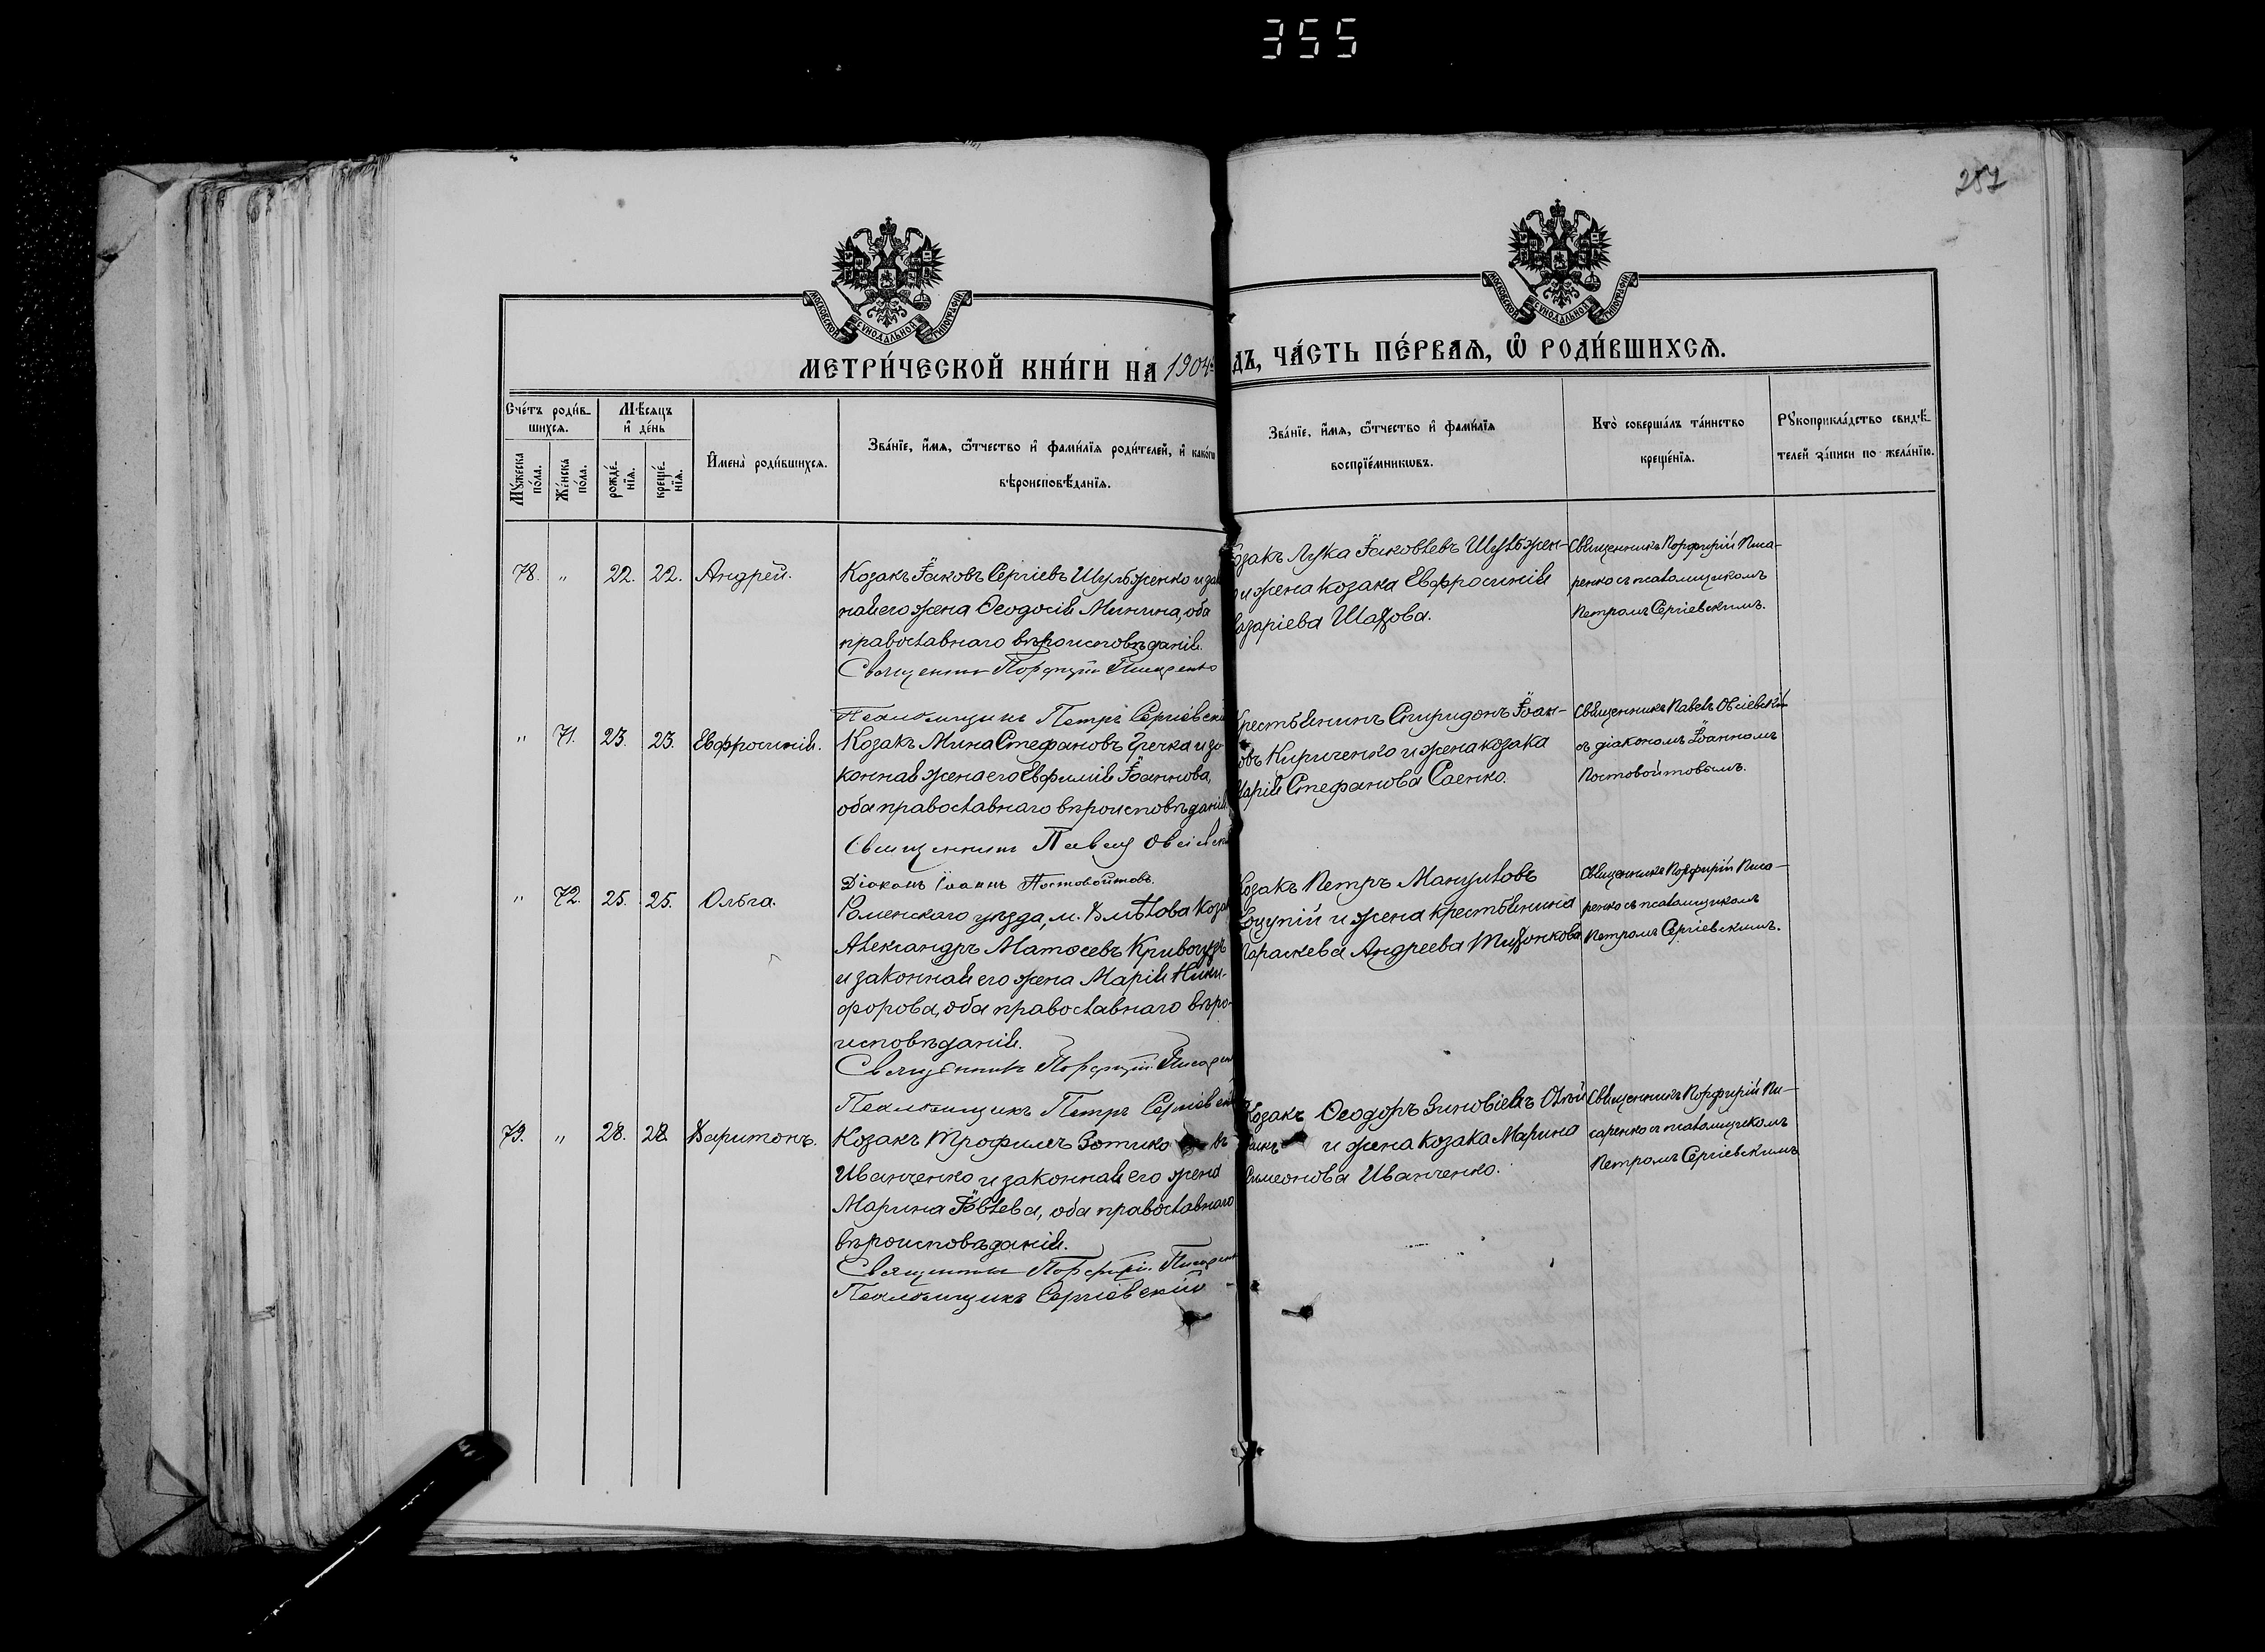 355
257
МОСКОВСКОЙ СѴНОДАЛЬНОЙ ТИПОГРАФІИ
МОСКОВСКОЙ СѴНОДАЛЬНОЙ ТИПОГРАФІИ
МЕТРИ́ЧЕСКОЙ КНИ́ГИ НА 1904
ДЪ, ЧА́СТЬ ПЕ́РВАЯ, Ѽ РОДИ́ВШИХСЯ.
Сче́тъ роди́в-
шихся.
Мѣ́сяцъ
и де́нь
Мꙋ́жеска по́ла.
Же́нска по́ла.
рожде́-
нїя.
креще́-
нїя.
Имена̀ роди́вшихся.
Зва́нїе, и́мя, ѻ́тчество и фами́лїя роди́телей, и како́гѡ
вѣроисповѣ́данїя.
Зва́нїе, и́мя, ѻ́тчество и фами́лїя
воспрїе́мникѡвъ.
Кто̀ соверша́лъ та́инство
креще́нїя.
Рꙋкоприкла́дство свидѣ́-
телей за́писи по жела́нїю.
78. " 22. 22. Андрей.
Козакъ Іаковъ Сергіевъ Шульженко и зак
ная его жена Ѳеодосія Минина, оба
православнаго вѣроисповѣданія.
Священникъ Порфирій Писаренко
Псаломщикъ Петръ Сергіевскі
озакъ Лука Іаковлевъ Шульжен-
о и жена козака Евфросинія
азаріева
Священникъ Порфирій Писа-
ренко съ псаломщикомъ
Петромъ Сергіевскимъ.
" 71. 23. 23. Евфросинія.
Козакъ Мина Стефановъ Гречка и за
конная жена его Евфимія Іоаннова,
оба православнаго вѣроисповѣданія
Священникъ Павелъ Овсіевскі
Діаконъ Іоаннъ Постовойтовъ.
Крестьянинъ Спиридонъ Іоан-
овъ Кириченко и жена козака
Марія Стефанова Саенко.
Священникъ Павелъ Овсіевскій
съ діакономъ Іоанномъ
Постовойтовымъ.
" 72. 25. 25. Ольга.
Роменскаго уѣзда, м. Хмѣлова Козак
Александръ Матѳеевъ
и законная его жена Марія Ники-
форова, оба православнаго вѣро-
исповѣданія.
Священникъ Порфирій Писарен
Псаломщикъ Петръ Сергіевскі
Козакъ Петръ Мануиловъ
Коцупій и жена крестьянина
Параскева Андреева
Священникъ Порфирій Писа-
ренко съ псаломщикомъ
Петромъ Сергіевскимъ.
79. " 28. 28. Харитонъ.
Козакъ Трофимъ Зотико въ
Иванченко и законная его жена
Марина Іовлева, оба православнаго
вѣроисповѣданія.
Священникъ Порфирій Писарен
Псаломщикъ Сергіевскій
Козакъ Ѳеодоръ Зиновіевъ Олѣй
никъ и жена козака Марина
Симеонова Иванченко.
Священникъ Порфирій Пи-
саренко съ псаломщикомъ
Петромъ Сергіевскимъ